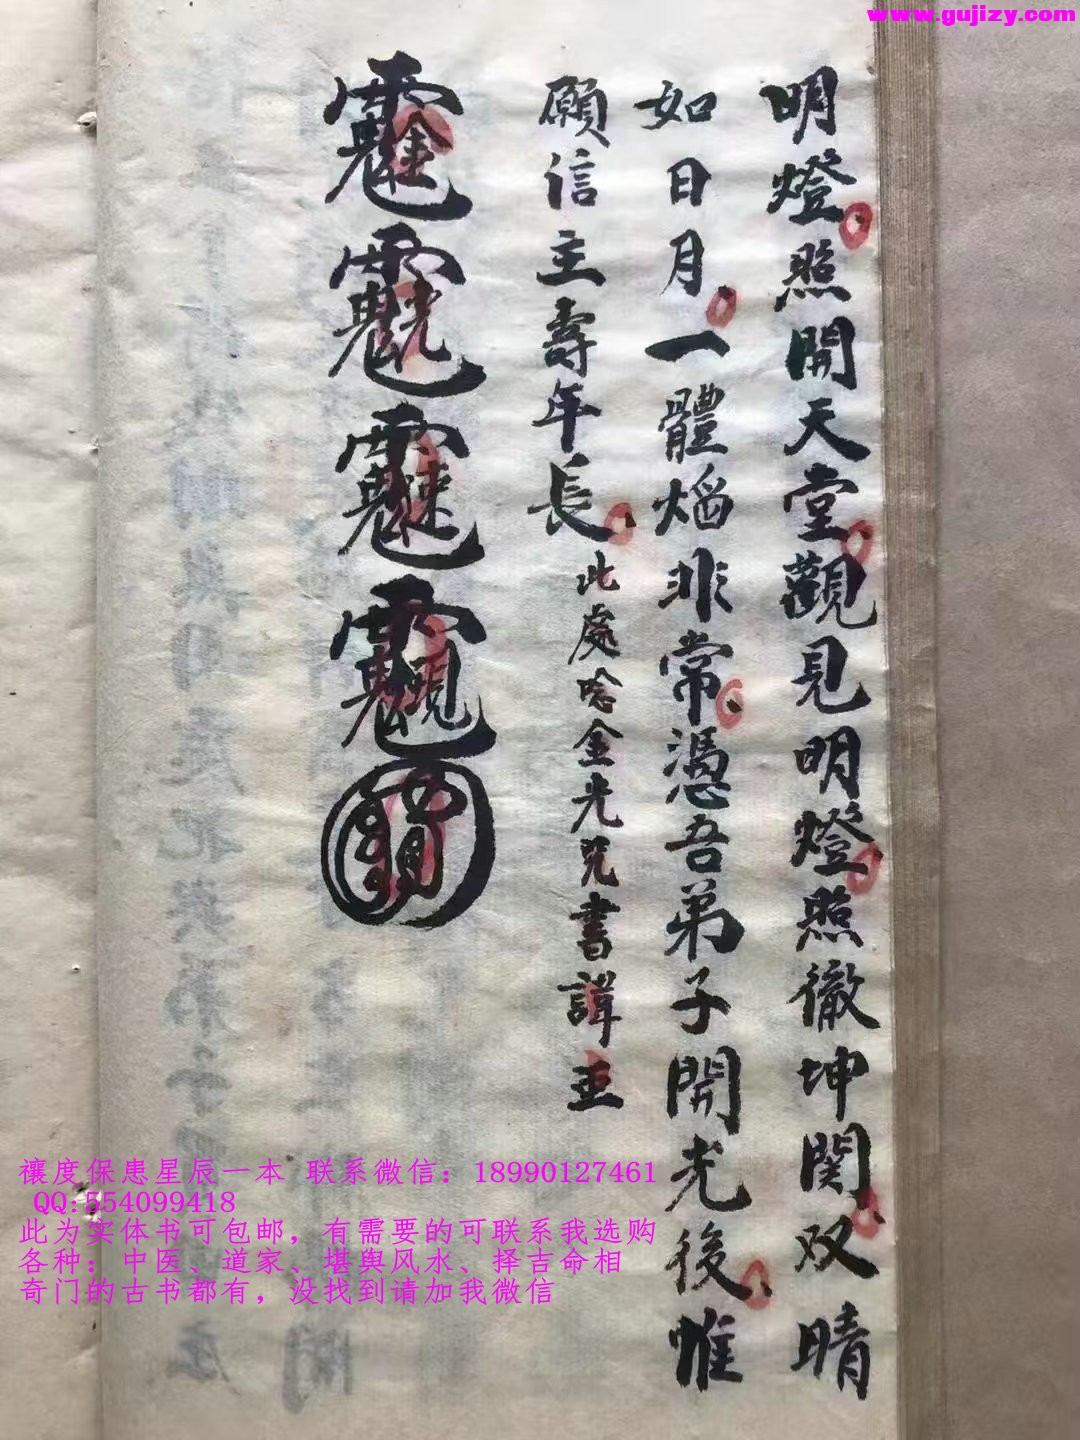 www.gujizy.com
明燈照開天堂觀見明燈照徹坤関双晴
如日月一體焰非常憑吾弟子開光後惟
願信主壽年長此處唸金光咒書諱並
禳度保患星辰一本 联系微信：18990127461
QQ:554099418
此为实体书可包邮，有需要的可联系我选购
各种：中医、道家、堪舆风水、择吉命相
奇门的古书都有，没找到请加我微信